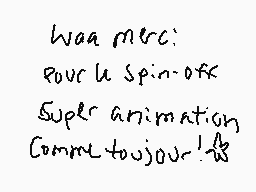 Waa merci
pour le spin-off
Super animation
Comme toujour!